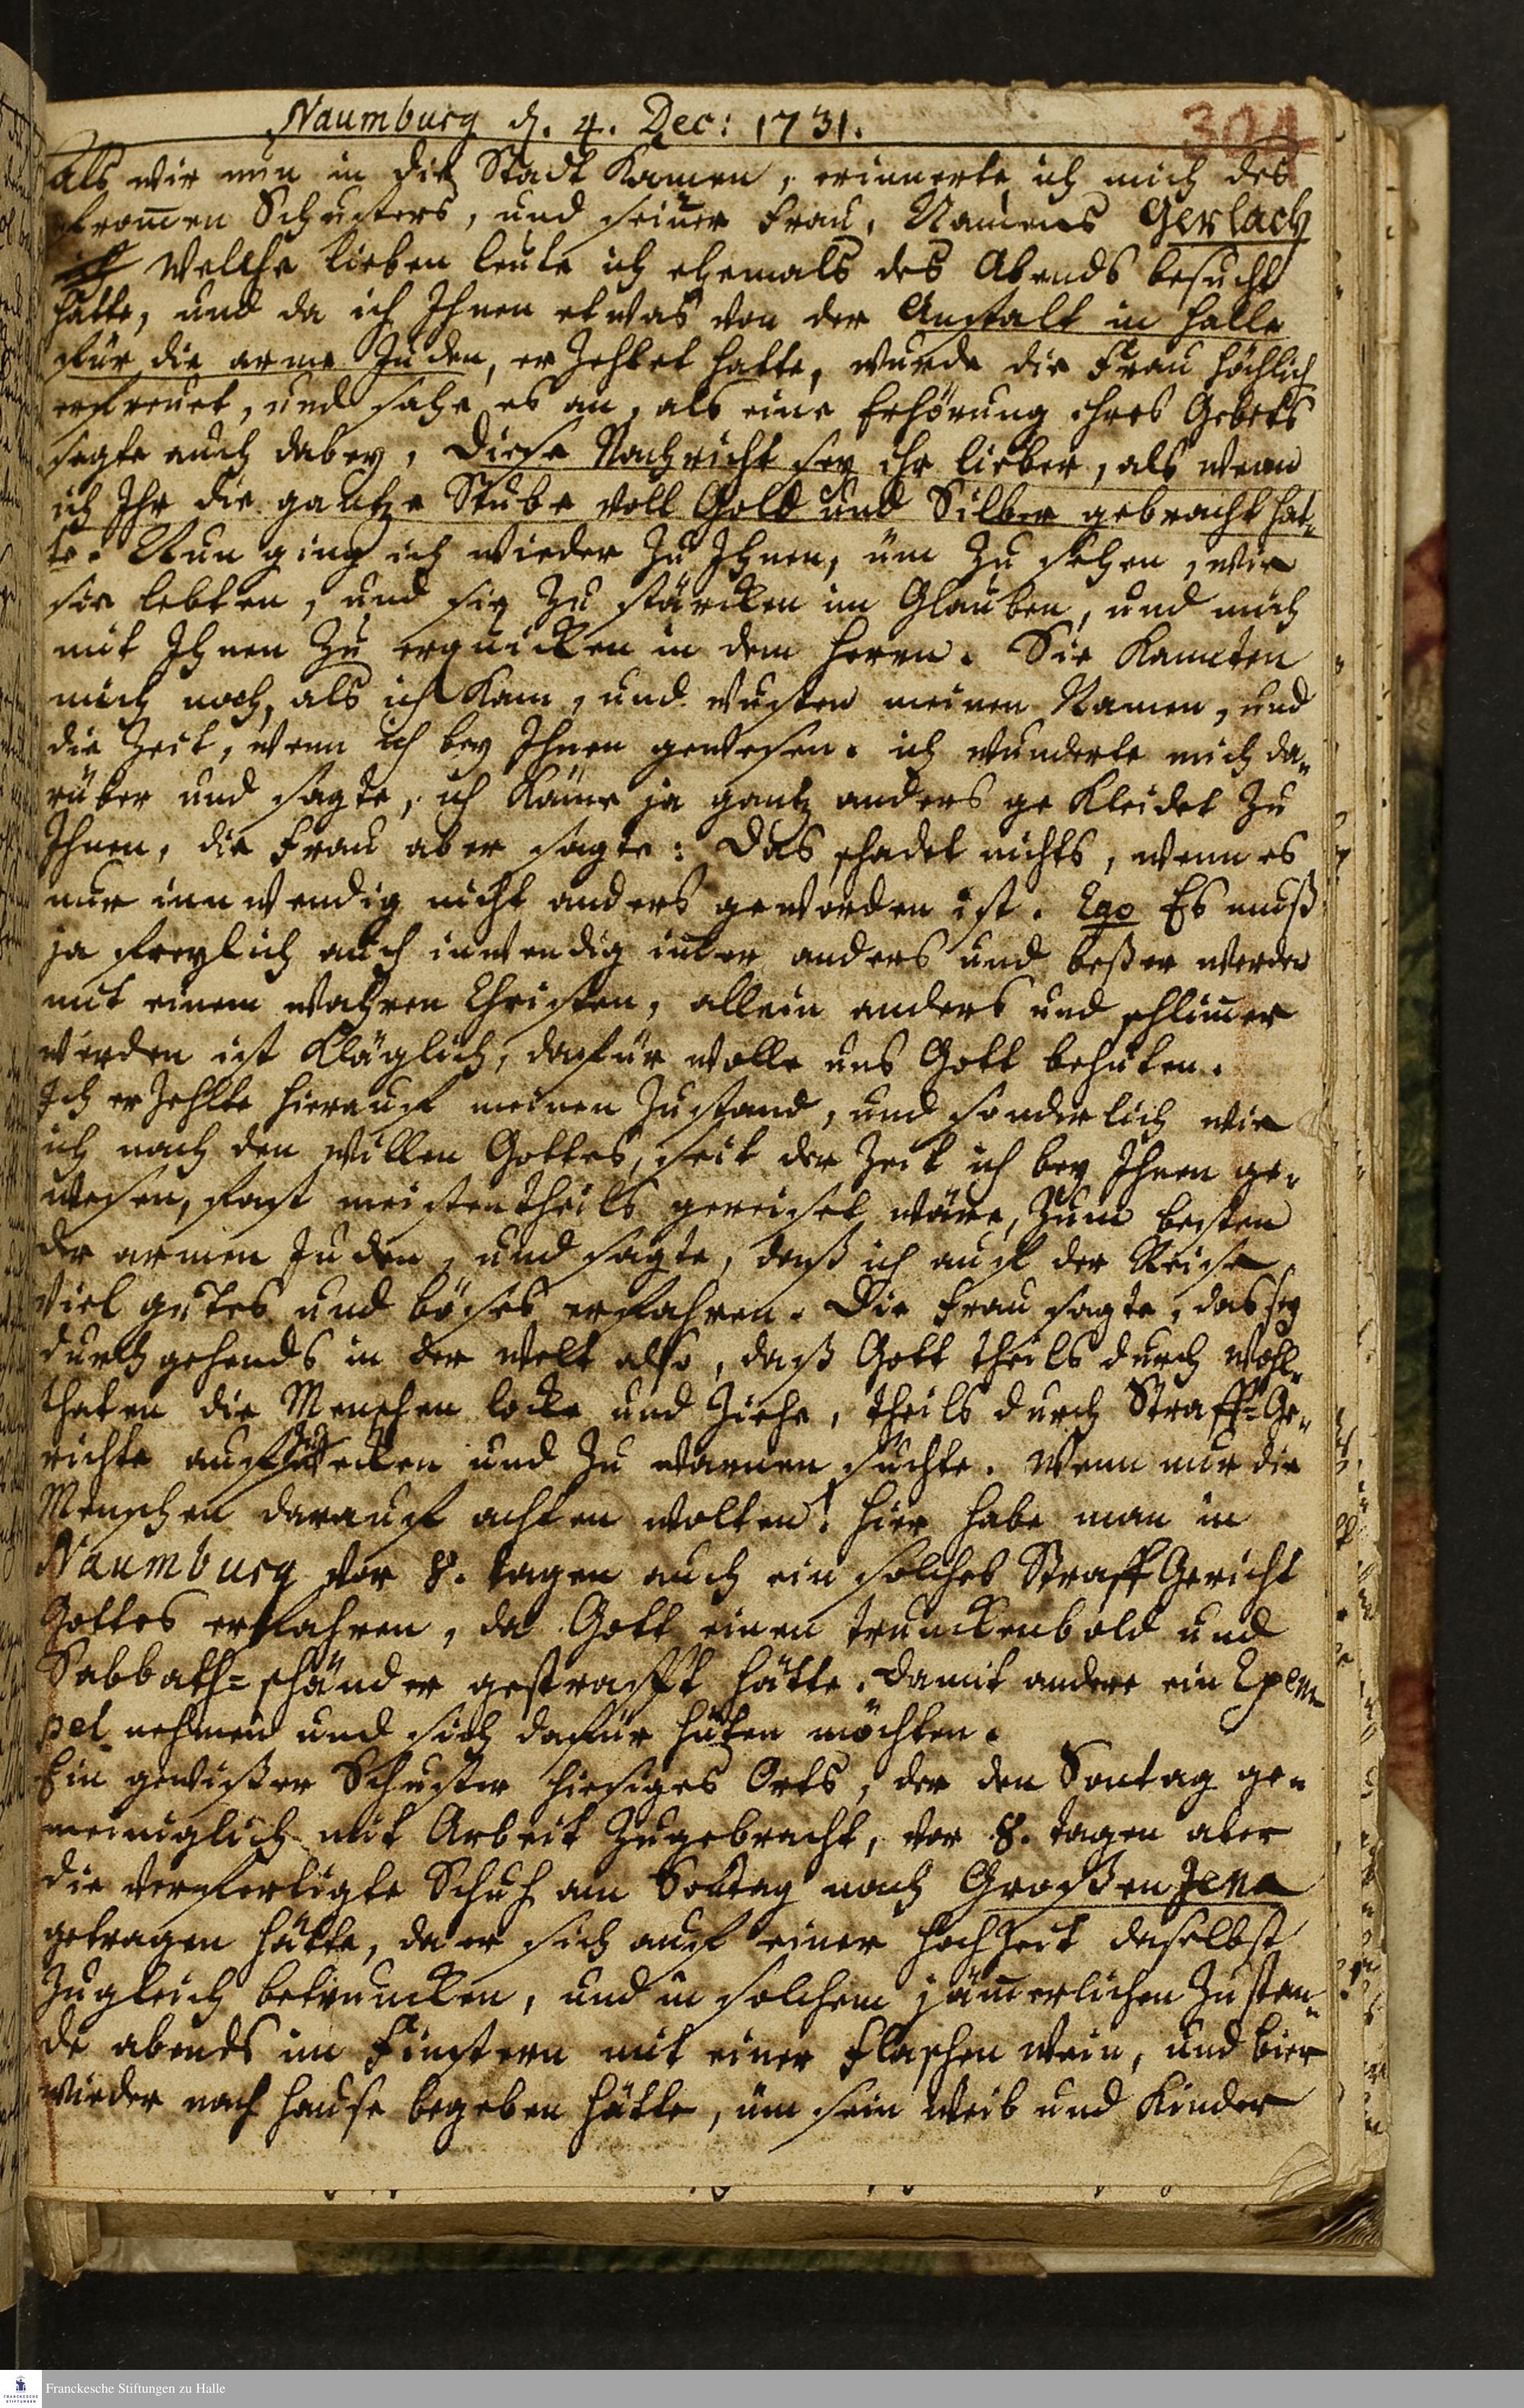 Naumburg d. 4. Dec: 1731.
304
Als wir nun in die Stadt kamen, erinnerte ich mich des
from̅en Schusters, und seiner Frau, Namens Gerlach
welche lieben leute ich ehemals des Abends besucht
hatte, und da ich Ihnen etwas von der Anstalt in Halle
für die arme Juden, erzehlet hatte, wurde die Frau höchlich
erfreuet, und sahe es an, als eine Erhörung ihres Gebets
sagte auch dabey, Diese Nachricht sey ihr lieber, als wenn
ich Ihr die gantze Stube voll Gold und Silber gebracht hät„
te. Nun ging ich wieder zu Ihnen, üm zu sehen, wie
sie lebten, und sie zu stärcken im Glauben, und mich
mit Ihnen zu erquicken in dem Herrn. Sie kannten
mich noch, als ich kam, und wusten meinen Namen, und
die Zeit, wenn ich bey Ihnen gewesen. ich wunderte mich da„
rüber und sagte, ich käme ja gantz anders gekleidet zu
Ihnen, die Frau aber sagte: Das schadet nichts, wenn es
nur innwendig nicht anders geworden ist. Ego Es muß
ja freylich auch inwendig im̅er anders und beßer werden
mit einem wahren Christen, allein anders und schlim̅er
werden ist kläglich, dafür wolle uns Gott behüten.
Ich erzehlte hierauf meinen Zustand, und sonderlich wie
ich nach den Willen Gottes, seit der Zeit ich bey Ihnen ge„
wesen, fast meistentheils gereiset wäre, zum besten
der armen Juden, und sagte, daß ich auf der Reise
viel gutes und böses erfahren. Die Frau sagte, das sey
durchgehends in der Welt also, daß Gott theils durch Wohl„
thaten die Menschen locke und ziehe, theils durch Straff-Ge„
richte aufzuwecken und zu warnen suchte. Wenn nur die
Menschen darauf achten wolten! hier habe man in
Naumburg vor 8. tagen auch ein solches Straff Gericht
Gottes erfahren, da Gott einen trunckenbold und
Sabbath-schänder gestrafft hätte. damit andere ein Exem
pel nehmen und sich dafür hüten möchten.
Ein gewißer Schuster hiesiges Orts, der den Sontag ge„
meiniglich mit Arbeit zugebracht, vor 8. tagen aber
die verfertigte Schuh am Sontag nach Großen Jena
getragen hätte, da er sich auf einer Hochzeit daselbst
zugleich betruncken, und in solchem jäm̅erlichen Zustan„
de abends im Finstern mit einer Flaschen Wein, und bier
wieder nach Hause begeben hätte, üm sein Weib und Kinder
Franckesche Stiftungen zu Halle